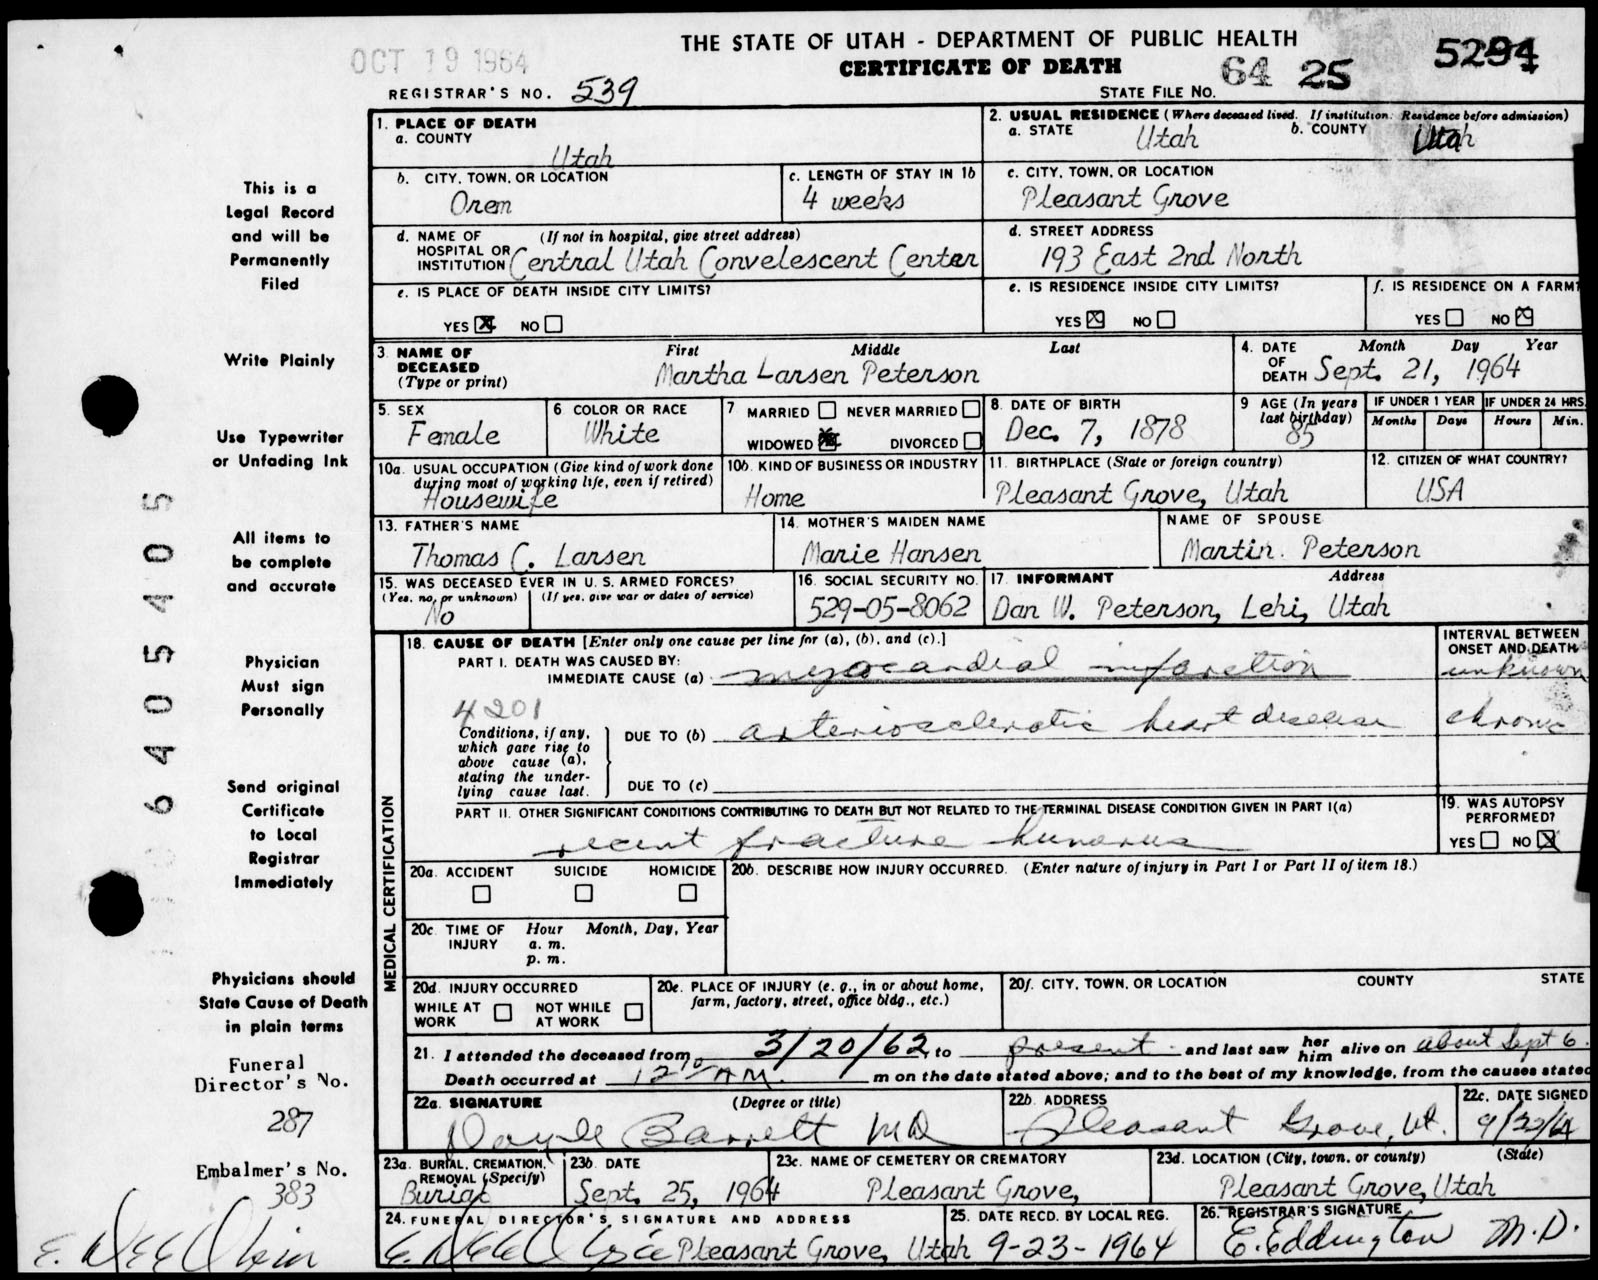 THE STATE OF UTAH - DEPARTMENT OF PUBLIC HEALTH
OCT 19 1964
CERTIFICATE OF DEATH
64 25 5294
REGISTRAR'S NO. 539
STATE FILE NO.
1. PLACE OF DEATH
a. COUNTY
Utah
2. USUAL RESIDENCE (Where deceased lived. If institution: Residence before admission)
a. STATE Utah b. COUNTY Utah
b. CITY, TOWN, OR LOCATION
Orem
c. LENGTH OF STAY IN 1b
4 weeks
c. CITY, TOWN, OR LOCATION
Pleasant Grove
d. NAME OF (If not in hospital, give street address)
HOSPITAL OR
INSTITUTION Central Utah Convelescent Center
d. STREET ADDRESS
193 East 2nd North
e. IS PLACE OF DEATH INSIDE CITY LIMITS?
YES NO
e. IS RESIDENCE INSIDE CITY LIMITS?
YES NO
f. IS RESIDENCE ON A FARM?
YES NO
3. NAME OF DECEASED (Type or print)
First Middle Last
Martha Larsen Peterson
4. DATE OF DEATH Month Day Year
Sept. 21, 1964
5. SEX
Female
6 COLOR OR RACE
White
7 MARRIED NEVER MARRIED
WIDOWED DIVORCED
8. DATE OF BIRTH
Dec. 7, 1878
9 AGE (In years last birthday)
85
IF UNDER 1 YEAR
Months Days
IF UNDER 24 HRS.
Hours Min.
10a. USUAL OCCUPATION (Give kind of work done
during most of working life, even if retired)
Housewife
10b. KIND OF BUSINESS OR INDUSTRY
Home
11. BIRTHPLACE (State or foreign country)
Pleasant Grove, Utah
12. CITIZEN OF WHAT COUNTRY?
USA
13. FATHER'S NAME
Thomas C. Larsen
14. MOTHER'S MAIDEN NAME
Marie Hansen
NAME OF SPOUSE
Martin. Peterson
15. WAS DECEASED EVER IN U.S. ARMED FORCES?
(Yes, no, or unknown) (If yes, give war or dates of service)
No
16. SOCIAL SECURITY NO.
529-05-8062
17. INFORMANT Address
Dan W. Peterson, Lehi, Utah
18. CAUSE OF DEATH [Enter only one cause per line for (a), (b), and (c).]
PART I. DEATH WAS CAUSED BY:
IMMEDIATE CAUSE (a) myocardial infarction
INTERVAL BETWEEN
ONSET AND DEATH
unknown
4201
Conditions, if any,
which gave rise to
above cause (a),
stating the under-
lying cause last.
DUE TO (b) arteriosclerotic heart disease
chronic
DUE TO (c)
PART II. OTHER SIGNIFICANT CONDITIONS CONTRIBUTING TO DEATH BUT NOT RELATED TO THE TERMINAL DISEASE CONDITION GIVEN IN PART I(a)
recent fracture humerus
19. WAS AUTOPSY
PERFORMED?
YES NO
MEDICAL CERTIFICATION
20a. ACCIDENT SUICIDE HOMICIDE
20b. DESCRIBE HOW INJURY OCCURRED. (Enter nature of injury in Part I or Part II of item 18.)
20c. TIME OF INJURY
Hour Month, Day, Year
a. m.
p. m.
20d. INJURY OCCURRED
WHILE AT WORK NOT WHILE AT WORK
20e. PLACE OF INJURY (e. g., in or about home,
farm, factory, street, office bldg., etc.)
20f. CITY, TOWN, OR LOCATION COUNTY STATE
21. I attended the deceased from 3/20/62, to present and last saw her him alive on about Sept 6.
Death occurred at 12 10 AM. m on the date stated above; and to the best of my knowledge, from the causes stated
22a. SIGNATURE (Degree or title)
Doyle Barrett MD
22b. ADDRESS
Pleasant Grove, Ut.
22c. DATE SIGNED
9/22/64
23a. BURIAL, CREMATION,
REMOVAL (Specify)
Burial
23b. DATE
Sept. 25, 1964
23c. NAME OF CEMETERY OR CREMATORY
Pleasant Grove,
23d. LOCATION (City, town, or county) (State)
Pleasant Grove, Utah
24. FUNERAL DIRECTOR'S SIGNATURE AND ADDRESS
Pleasant Grove, Utah
25. DATE RECD. BY LOCAL REG.
9-23-1964
26. REGISTRAR'S SIGNATURE
E. Eddington M.D.
This is a
Legal Record
and will be
Permanently
Filed
Write Plainly
Use Typewriter
or Unfading Ink
All items to
be complete
and accurate
Physician
Must sign
Personally
Send original
Certificate
to Local
Registrar
Immediately
Physicians should
State Cause of Death
in plain terms
Funeral
Director's No.
287
Embalmer's No.
383
6405405